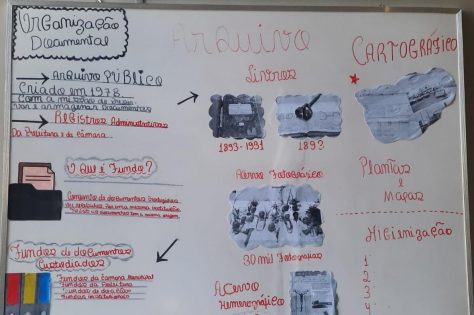 Organização
Documental
Arquivo Público
Criado em 1978.
Com a missão de
e armazenar Documentos
Registros Administrativos
Da Prefeitura e da Câmara.
O Que é Fundo?
Conjunto de documentos
uma mesma instituição
Fundos de documentos
Custodiados
Fundos da Câmara Municipal
Fundos da Prefeitura
Fundos de doação
Fundos institucionais
Arquivo
Livros
1893-1991
1893
Acervo Fotográfico
30 mil Fotografias
Acervo
Hemerográfico
Cartográfico
Plantas
e
Mapas
Higienização
1
2
3
4